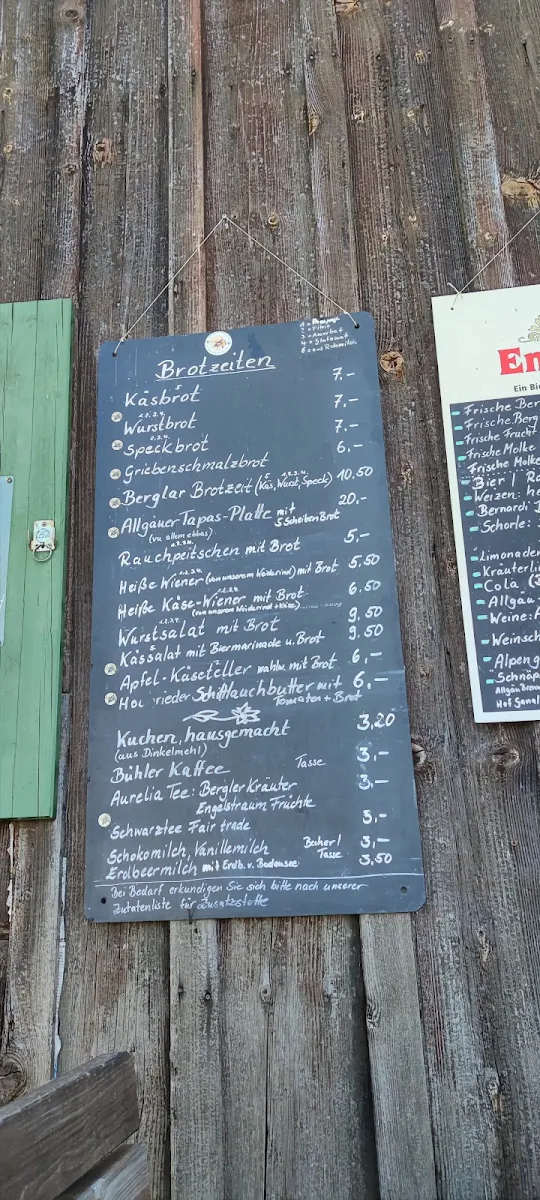 Brotzeiten
Käsbrot 7.-
Wurstbrot 7.-
Speckbrot 7.-
Griebenschmalzbrot 6.-
Berglar Brotzeit (Käs, Wurst, Speck) 10.50
Allgäuer Tapas-Platte mit 5 Scheiben Brot 20.-
Rauchpeitschen mit Brot 5,-
Heiße Wiener (von unserem Weiderind) mit Brot 5.50
Heiße Käse-Wiener mit Brot 6.50
(von unserem Weiderind + Käse)
Wurstsalat mit Brot 9.50
Kässalat mit Biermarinade u. Brot 9.50
Apfel-Käseteller mit Brot 6,-
Schnittlauchbutter mit Tomaten + Brot 6,-
Kuchen, hausgemacht 3,20
(aus Dinkelmehl)
Bühler Kaffee Tasse 3,-
Aurelia Tee: Bergler Kräuter 3,-
Engelstraum Früchte
Schwarztee Fair trade 3,-
Schokomilch, Vanillemilch Becher/ 3,-
Erdbeermilch mit Erdb. v. Bodensee Tasse 3,50
Bei Bedarf erkundigen Sie sich bitte nach unserer
Zutatenliste für Zusatzstoffe
Ein Bie
Frische Ber
Frische Berg
Frische Frucht
Frische Molke
Frische Molke
Bier / Ra
Weizen: he
Bernardi D
Schorle:
Limonaden
Kräuterlim
Cola
Allgäu
Weine:
Weinsch
Alpeng
Schnäp
Allgäu Brenn